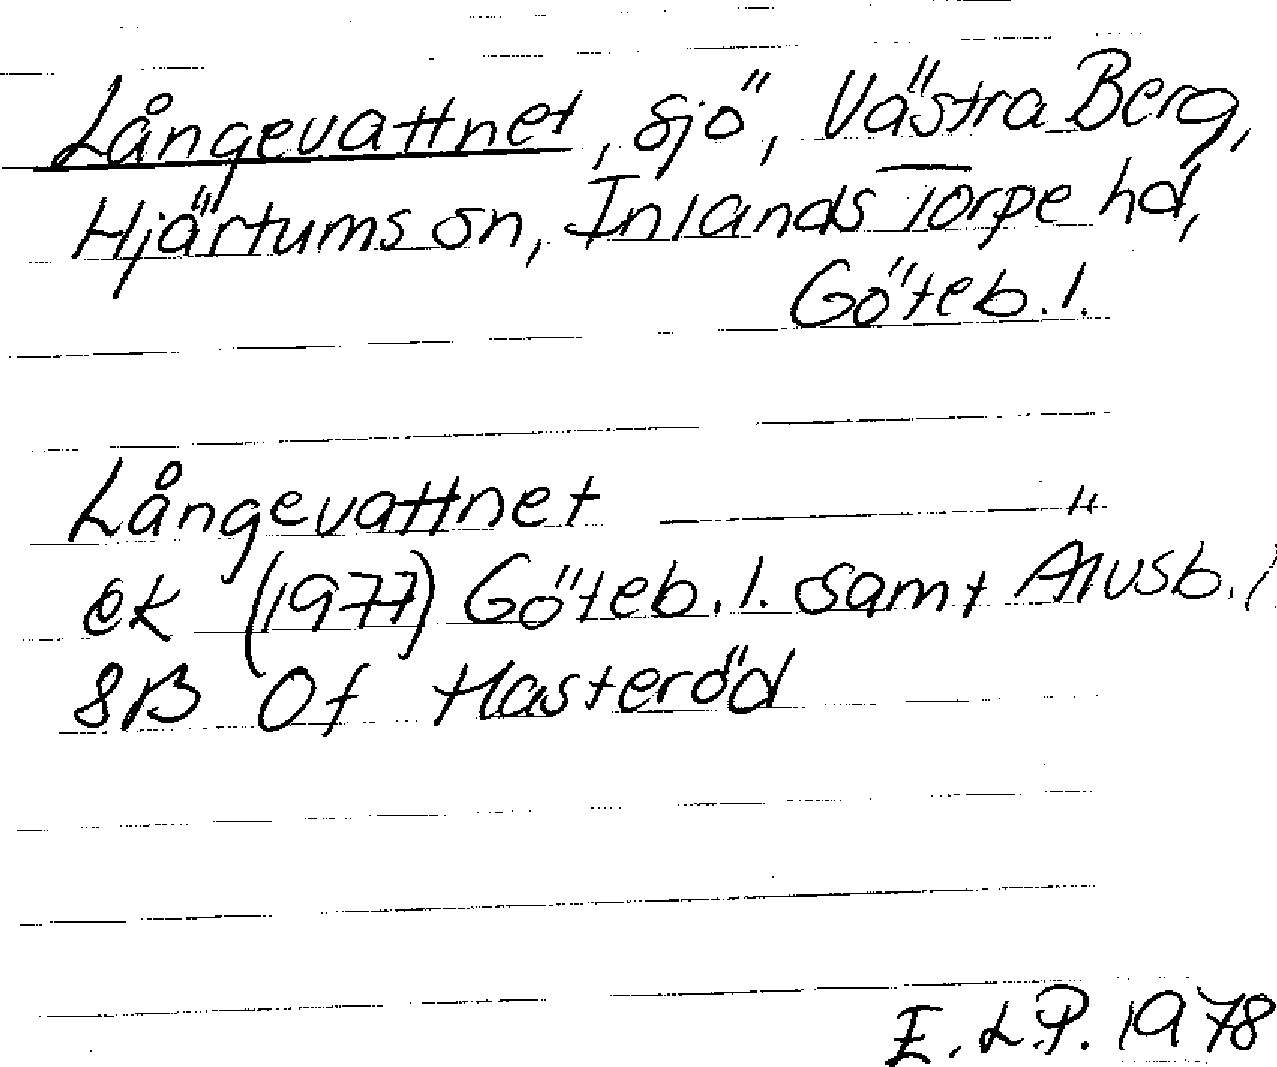 Långevattnet, sjö, Västra Berg,
Hjärtums sn, Inlands Torpe hd,
Göteb. l.
Långevattnet "
ek (1977) Göteb. l. samt Älvsb. l
8B 0f Hasteröd
E. L.P. 1978